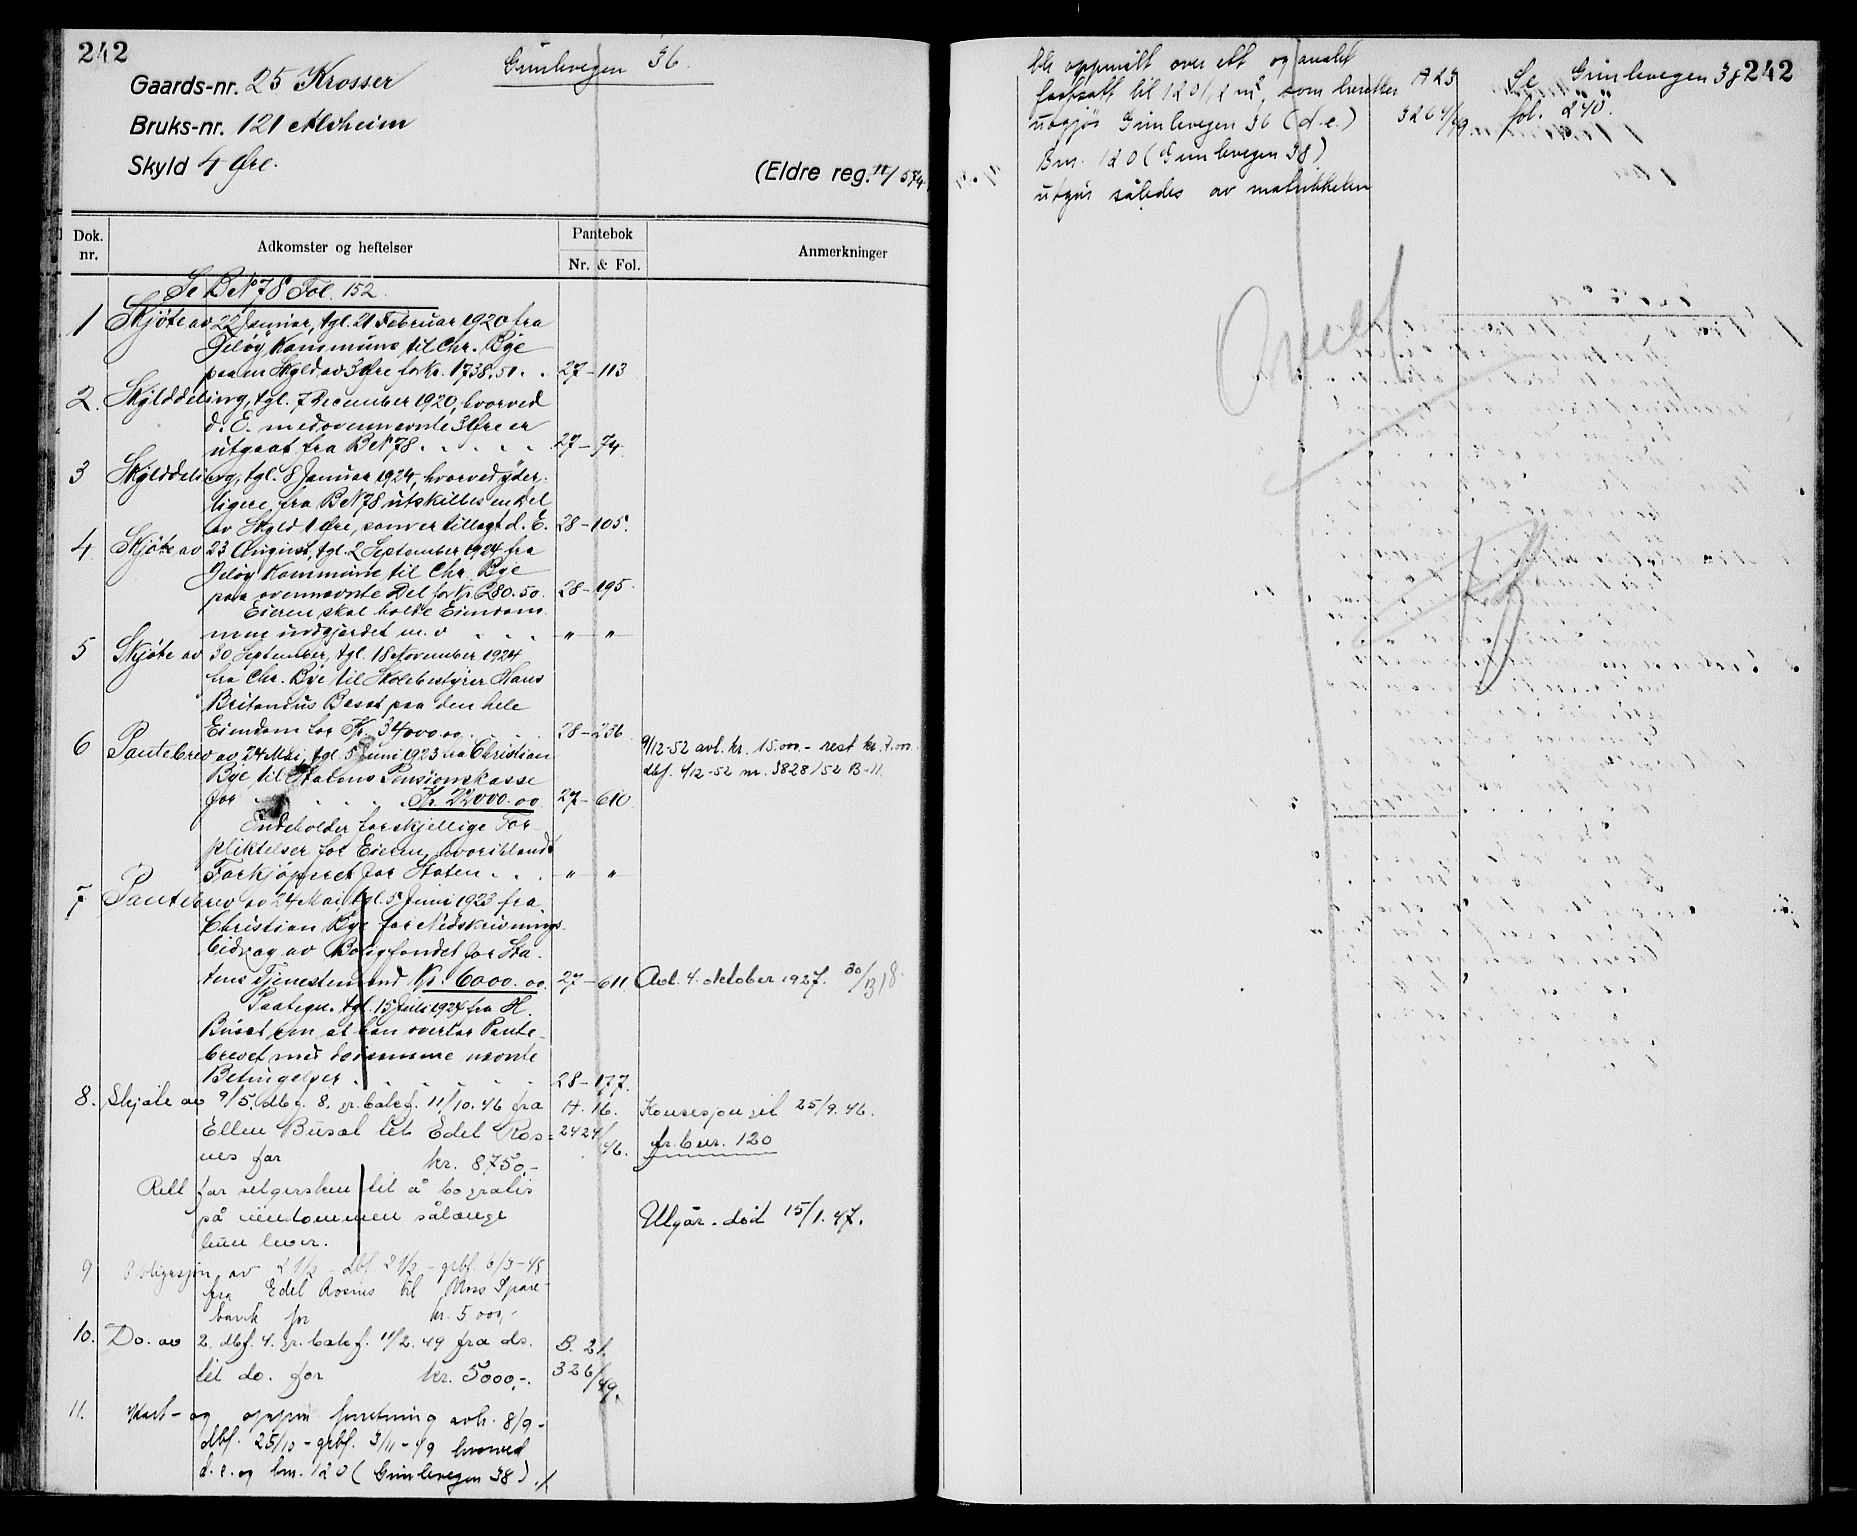 242
Gaards-nr. 25 Krosser
Grimlevegen 36.
Bruks-nr. 121 Alvheim
Skyld 4 Øre.
(Eldre reg. 11/574
Dok. nr.
Adkomster og heftelser
Pantebok
Nr. & Fol.
Anmerkninger
Se BN° 78 Fol. 152.
1 Skjøte av 22 Januar, tgl. 21 Februar 1920 fra
Jeløy Kommune til Chr. Bye
paa en Skyld av 3 Øre for Kr. 1738.50 . . 27 - 113
2. Skylddeling, tgl. 7 December 1920, hvorved
d. E. med ovennævnte 3 Øre er
utgaat fra BN° 78 . . . . . 27 - 74.
3 Skylddeling, tgl. 8 Januar 1924, hvorved yder-
ligere fra BN° 78 utskilles en del
av Skyld 1 Øre, som er tillagt d. E. 28 - 105.
4. Skjøte av 23 August, tgl. 2 September 1924 fra
Jeløy Kommune til Chr. Bye
paa ovennævnte Del for Kr. 280.50. 28 - 195.
Eieren skal holde Eiendom-
men indgjerdet m. v . . . " - "
5 Skjøte av 30 September, tgl. 18 November 1924
fra Chr. Bye til Skolebestyrer Hans
Britanius Buset paa den hele
Eiendom for Kr. 34000.00 . . . 28 - 236
6 Pantebrev av 24 Mai, tgl. 5 Juni 1923 fra Christian
Bye til Statens Pensionskasse
for . . . . Kr. 22000.00 27 - 610
9/12-52 avl. kr. 15.000.- rest kr. 7.000
dbf. 4/12-52 nr. 3828/52 B-11.
Indeholder forskjellige For-
pliktelser for Eieren, hvoriblandt
Forkjøpsret for Staten . . . " - "
7 Pantebrev av 24 Mai, tgl. 5 Juni 1923 fra
Christian Bye for Nedskrivnings-
bidrag av Boligfondet for Sta-
tens Tjenestemænd Kr. 6000.00. 27 - 611 Avl. 4. oktober 1927. 30/B18.
Paategn. tgl. 15 Juli 1924 fra H.
Buset om at han overtar Pante-
brevet med dersamme nævnte
Betingelser . . . . . . 28 - 177.
8. Skjøte av 9/5. dbf. 8. gr.bokf. 11/10.46 fra A. 16. Konsesjon git 25/9.46.
Ellen Buset til Edel Ros- 2424/46. fr. bnr. 120
nes for kr. 8750,-
Rett for selgersken til å bo gratis
på eiendommen sålænge Utgår. død 15/1.47.
hun lever.
9 Obligasjon av 2 1/2 - dbf 2 1/2 - grbf 6/3-48
fra Edel Rosnes til Moss Spare-
bank for kr. 5.000,-
10. Do. av 2. dbf. 4. gr. bokf. 11/2. 49 fra ds. B. 21.
til do. for kr. 5000,-. 326/49.
11. Kart- og oppm forretning avh. 8/9-
dbf. 25/10 - grbf. 3/11-49 hvorved
d. e. og bnr. 120 (Grimlevegen 38) ./.
ble oppmålt over ett og arealet
fastsatt til 1201,2 m², som heretter A 23
utgjør Grimlevegen 36 (d.e.) 3264/49.
Bnr. 120 (Grimlevegen 38)
utgår således av matrikkelen
Se Grimlevegen 38
fol. 240.
242